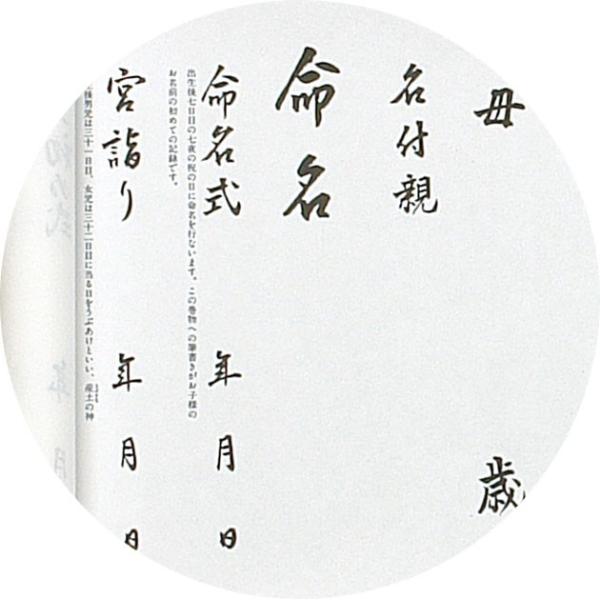 母 歳
名付親
命名
命名式 年 月 日
出生後七日目の七夜の祝の日に命名を行ないます。この巻物への筆書きがお子様の
お名前の初めての記録です。
宮詣り 年 月 日
男児は三十一日目、女児は三十二日目に当る日をうぶあけといい、産土の神